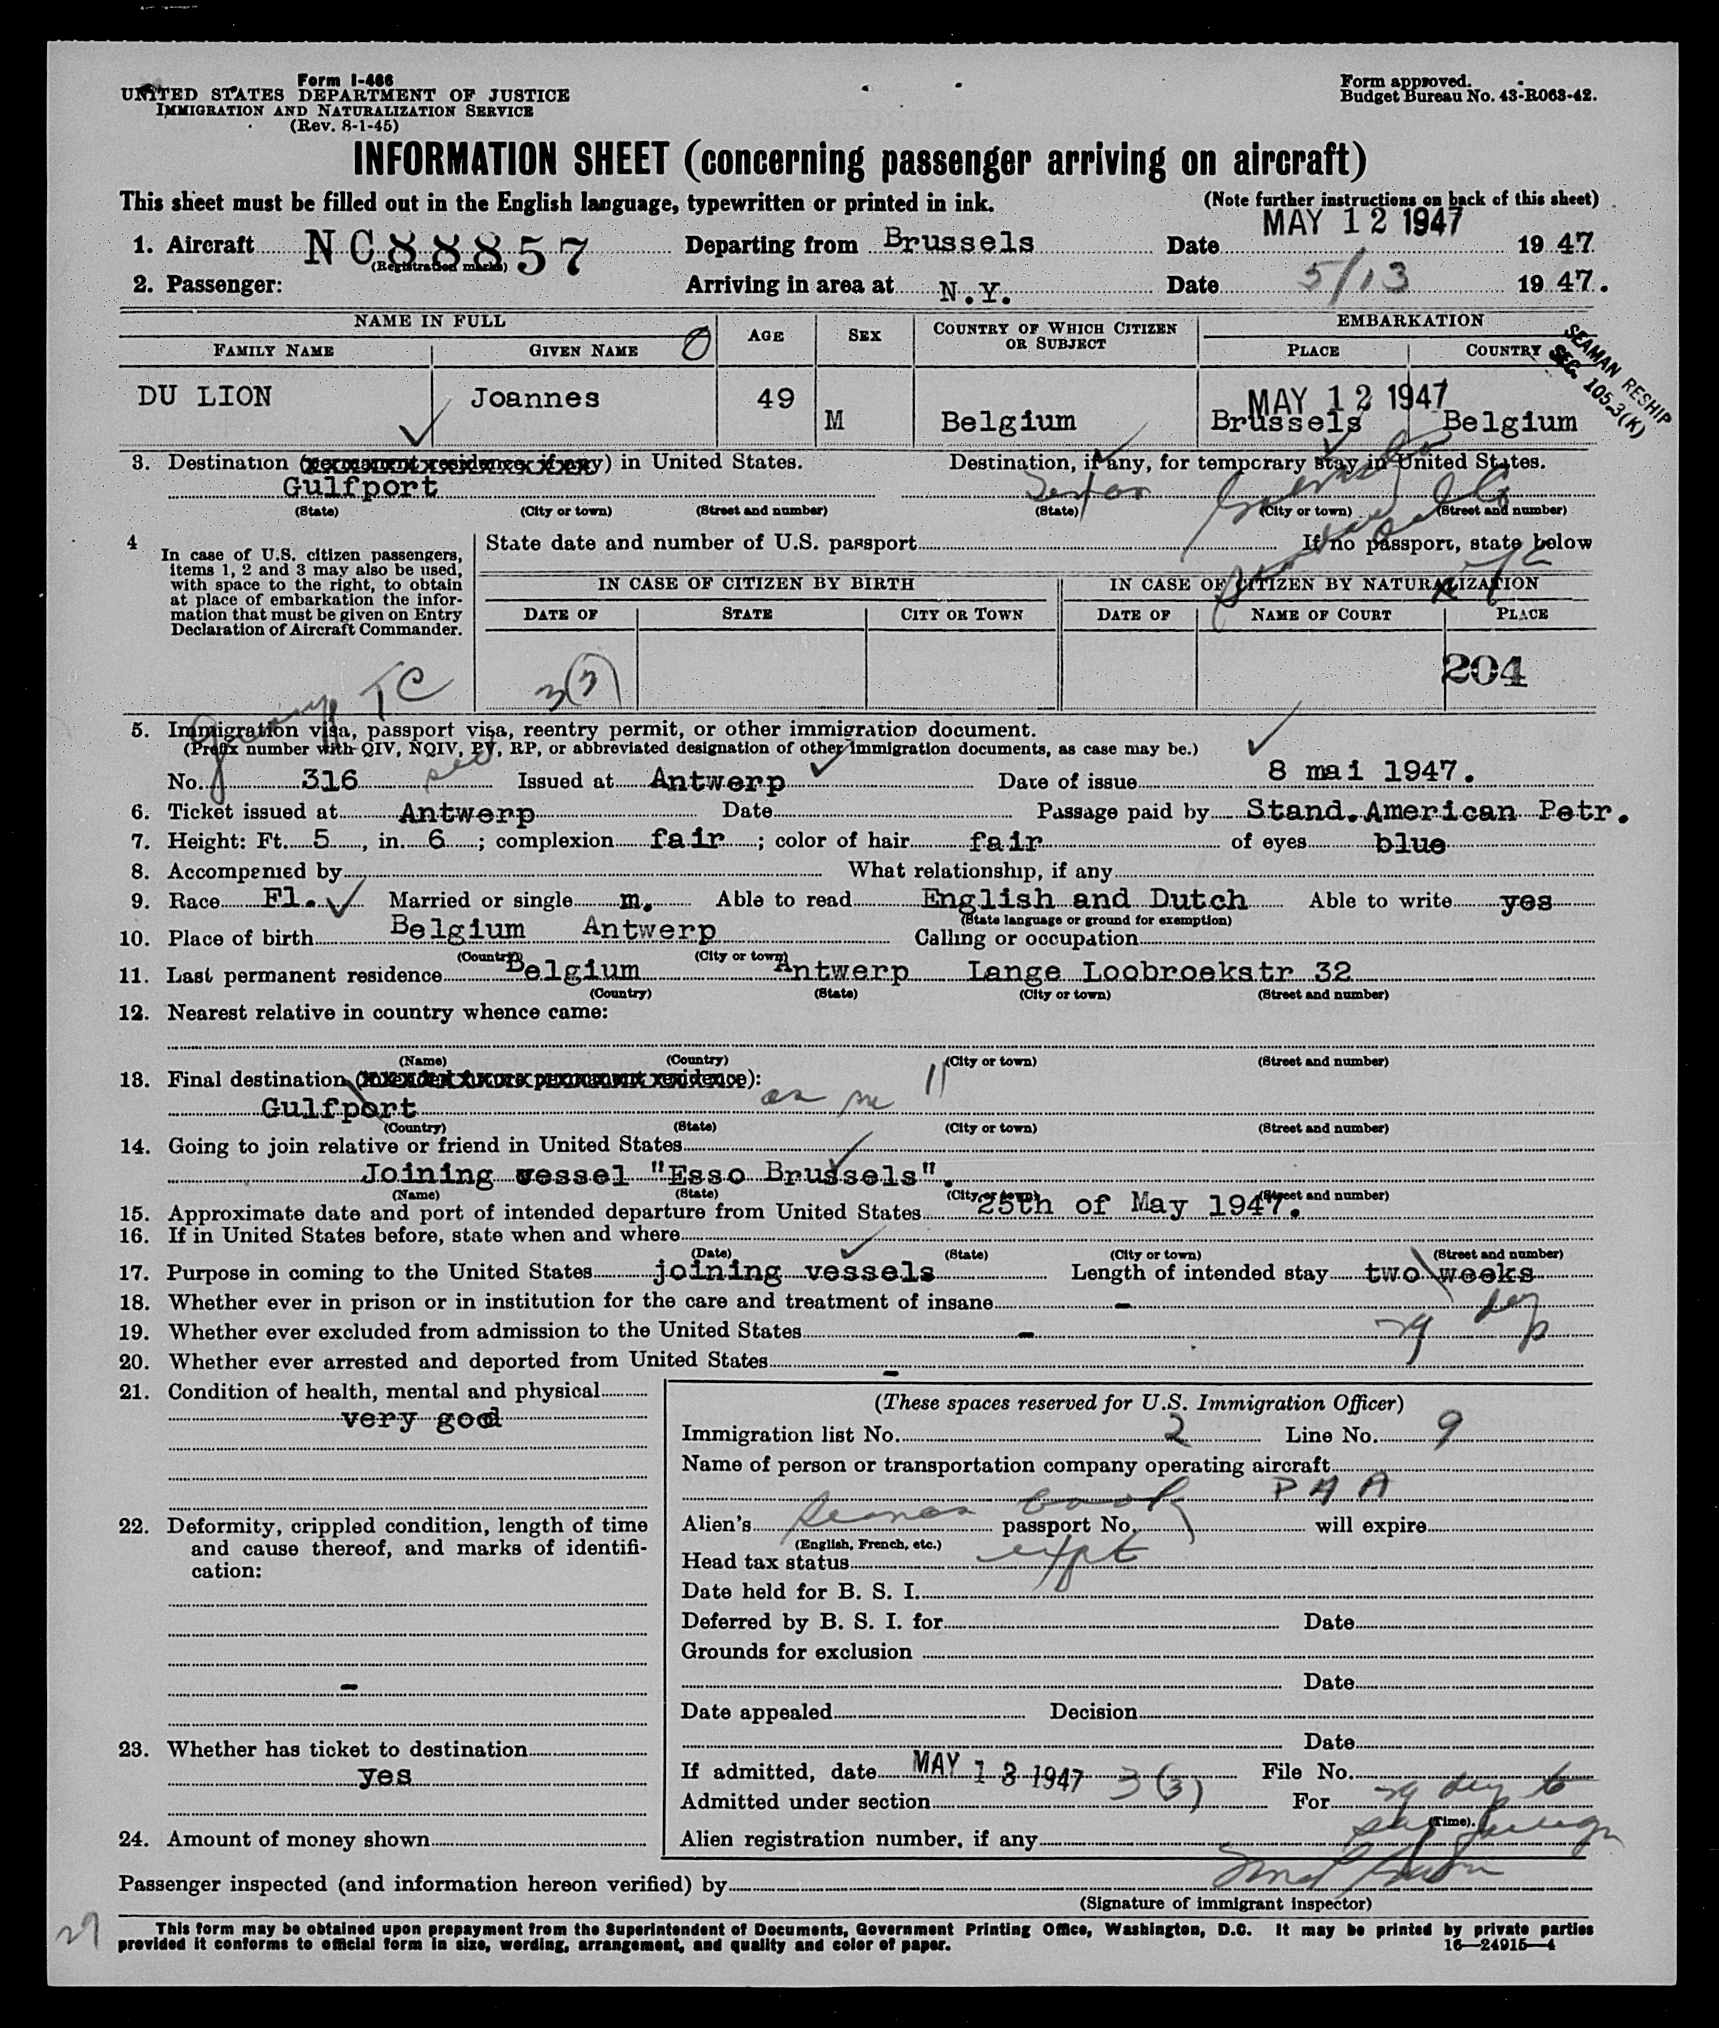 Form I-466
UNITED STATES DEPARTMENT OF JUSTICE
IMMIGRATION AND NATURALIZATION SERVICE
(Rev. 8-1-45)
Form approved.
Budget Bureau No. 43-R063-42.
INFORMATION SHEET (concerning passenger arriving on aircraft)
This sheet must be filled out in the English language, typewritten or printed in ink.
(Note further instructions on back of this sheet)
MAY 12 1947
1. Aircraft NC88857 Departing from Brussels Date 19 47
(Registration marks)
2. Passenger: Arriving in area at N.Y. Date 5/13 19 47.
NAME IN FULL AGE SEX COUNTRY OF WHICH CITIZEN OR SUBJECT EMBARKATION
FAMILY NAME GIVEN NAME PLACE COUNTRY
SEAMAN RESHIP
SEC. 105.3(K)
MAY 12 1947
DU LION Joannes 49 M Belgium Brussels Belgium
3. Destination (permanent residence if any) in United States. Destination, if any, for temporary stay in United States.
Gulfport
(State) (City or town) (Street and number) (State) (City or town) (Street and number)
4 In case of U.S. citizen passengers, items 1, 2 and 3 may also be used, with space to the right, to obtain at place of embarkation the information that must be given on Entry Declaration of Aircraft Commander.
State date and number of U.S. passport If no passport, state below
IN CASE OF CITIZEN BY BIRTH IN CASE OF CITIZEN BY NATURALIZATION
DATE OF STATE CITY OR TOWN DATE OF NAME OF COURT PLACE
TC 3(3) 204
5. Immigration visa, passport visa, reentry permit, or other immigration document.
(Prefix number with QIV, NQIV, PV, RP, or abbreviated designation of other immigration documents, as case may be.)
No. 316 Issued at Antwerp Date of issue 8 mai 1947.
6. Ticket issued at Antwerp Date Passage paid by Stand.American Petr.
7. Height: Ft. 5, in. 6; complexion fair; color of hair fair of eyes blue
8. Accompanied by What relationship, if any
9. Race Fl. Married or single m. Able to read English and Dutch Able to write yes
(State language or ground for exemption)
10. Place of birth Belgium Antwerp Calling or occupation
(Country) (City or town)
11. Last permanent residence Belgium Antwerp Lange Loobroekstr 32
(Country) (State) (City or town) (Street and number)
12. Nearest relative in country whence came:
(Name) (Country) (City or town) (Street and number)
13. Final destination (intended future permanent residence):
Gulfport
(Country) (State) (City or town) (Street and number)
14. Going to join relative or friend in United States
Joining vessel "Esso Brussels".
(Name) (State) (City or town) (Street and number)
15. Approximate date and port of intended departure from United States 25th of May 1947.
16. If in United States before, state when and where
(Date) (State) (City or town) (Street and number)
17. Purpose in coming to the United States joining vessels Length of intended stay two weeks
18. Whether ever in prison or in institution for the care and treatment of insane -
29 days
19. Whether ever excluded from admission to the United States -
20. Whether ever arrested and deported from United States -
21. Condition of health, mental and physical
very good
22. Deformity, crippled condition, length of time and cause thereof, and marks of identification:
-
23. Whether has ticket to destination
yes
24. Amount of money shown
(These spaces reserved for U.S. Immigration Officer)
Immigration list No. 2 Line No. 9
Name of person or transportation company operating aircraft
P A A
Alien's seamans book passport No. will expire
(English, French, etc.)
Head tax status expt
Date held for B. S. I.
Deferred by B. S. I. for Date
Grounds for exclusion
Date
Date appealed Decision
Date
If admitted, date MAY 13 1947 File No.
Admitted under section 3(3) For 29 days to
(Time).
Alien registration number, if any
Passenger inspected (and information hereon verified) by
(Signature of immigrant inspector)
29
This form may be obtained upon prepayment from the Superintendent of Documents, Government Printing Office, Washington, D.C. It may be printed by private parties
provided it conforms to official form in size, wording, arrangement, and quality and color of paper.
16—24915—4